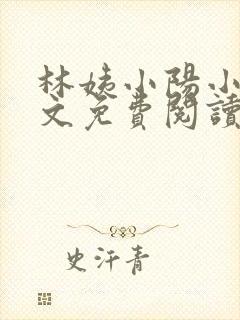 林姨小陽小
文免費閱讀
史汗青